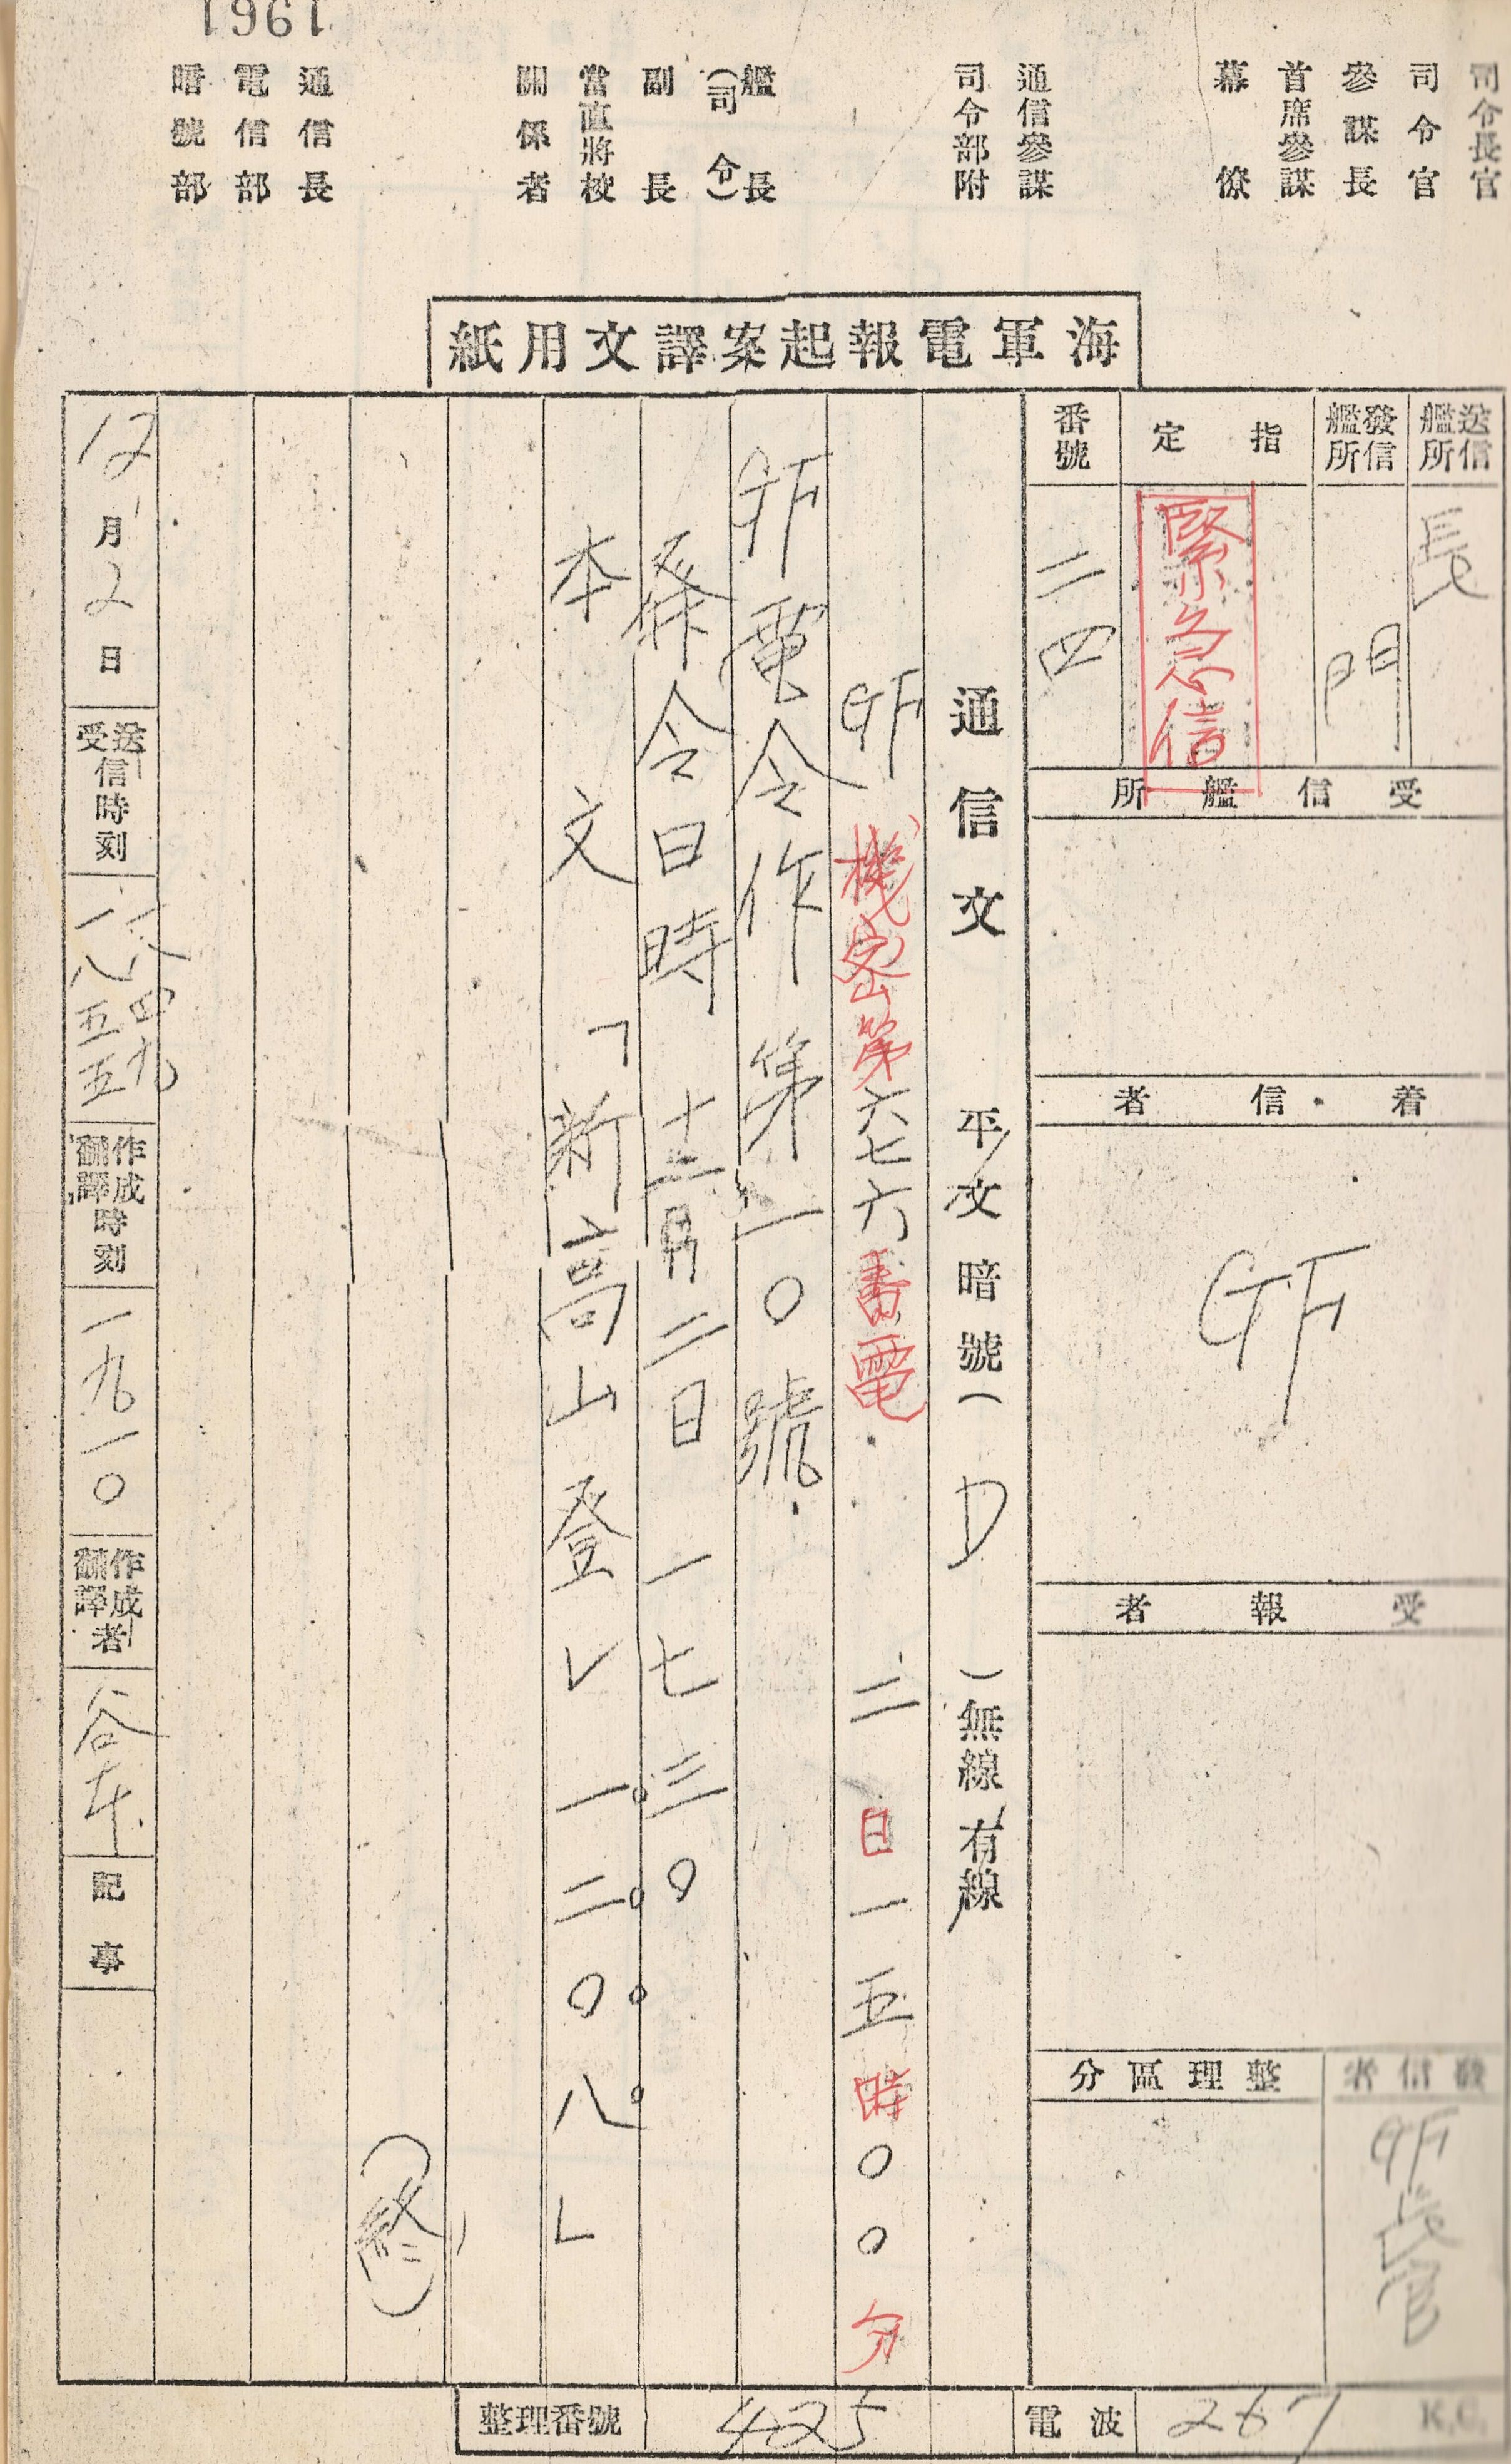 1961
司令長官
司令官
參謀長
首席參謀
幕僚
通信參謀
司令部附
艦長
(司令)
副長
當直將校
關係者
通信長
電信部
暗號部
海軍電報起案譯文用紙
送信艦所
長
發信艦所
門
指定
緊急信
番號
二四
受信艦所
着信者
GF
受報者
發信者
GF長官
整理區分
通信文 平文暗號(D)無線有線
GF機密第六七六番電 二日一五時〇〇分
GF電令作第一〇號
發令日時 十二月二日 一七三〇
本文「新高山登レ一二〇八」
(終)
12月2日
送受信時刻
一八四九
一八五五
作成飜譯時刻
一九一〇
作成飜譯者
記事
電波 267 K.C.
整理番號 425